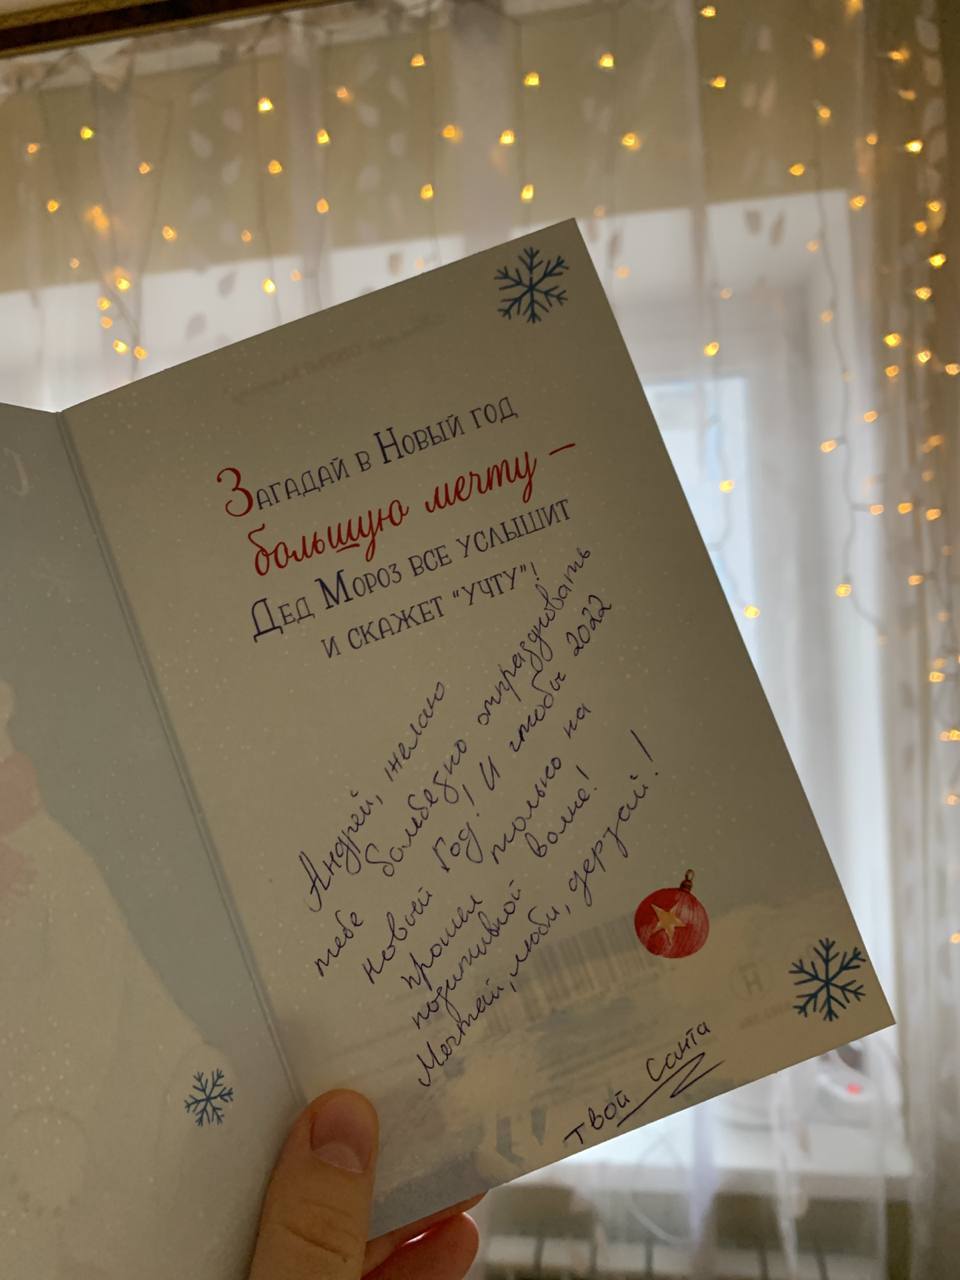 Загадай в Новый год
большую мечту –
Дед Мороз все услышит
и скажет "учту"!
Андрей, желаю
тебе бомбезно отпраздновать
новый год! И чтобы 2022
прошел только на
позитивной волне!
Мечтай, люби, дерзай!
твой Санта